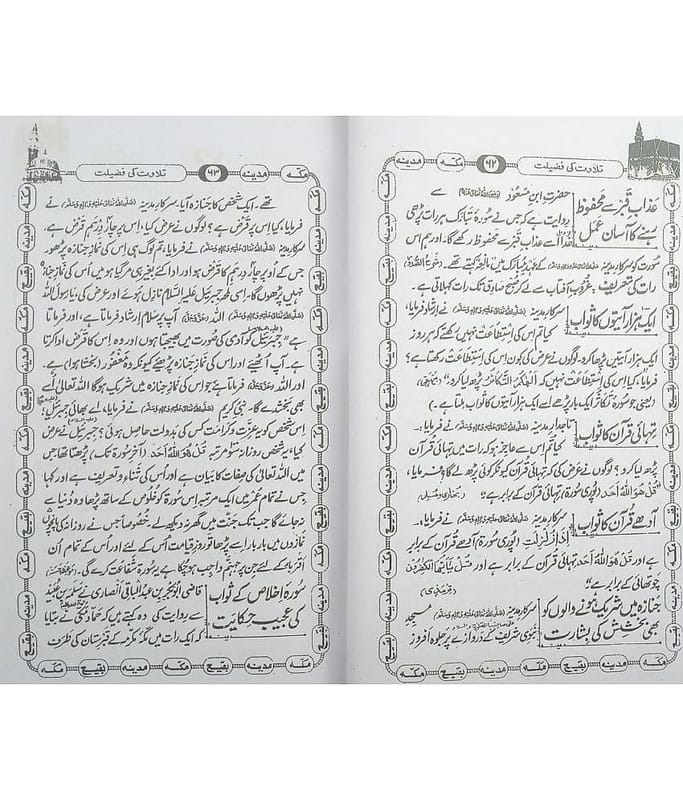 مدینہ مکہ ۶۲ تلاوت کی فضیلت
عذاب قبر سے محفوظ حضرت ابن مسعود سے
رہنے کا آسان عمل روایت ہے کہ جس نے سورۂ تبارک ہر رات پڑھی
اللہ اسے عذاب قبر سے محفوظ رکھے گا۔ اور ہم اس
سورت کو سرکار مدینہ کے عہد مبارک میں مانعہ کہتے تھے۔
رات کی تعریف غروب آفتاب سے لے کر صبح صادق تک رات کہلاتی ہے۔
ایک ہزار آیتوں کا ثواب سرکار مدینہ نے ارشاد فرمایا،
کیا تم اس کی استطاعت نہیں رکھتے کہ ہر روز
ایک ہزار آیتیں پڑھا کرو۔ لوگوں نے عرض کی کون اس کی استطاعت رکھتا ہے؟
فرمایا، کیا اس کی استطاعت نہیں کہ اَلْهٰكُمُ التَّكَاثُرُ پڑھ لیا کرو۔ (بیہقی)
(یعنی جو سورۂ تکاثر ایک بار پڑھے اسے ایک ہزار آیتوں کا ثواب ملتا ہے۔)
تہائی قرآن کا ثواب تاجدار مدینہ نے فرمایا،
کیا تم اس سے عاجز ہو کہ رات میں تہائی قرآن
پڑھ لیا کرو؟ لوگوں نے عرض کی کہ تہائی قرآن کیونکر کوئی پڑھ لے گا؟ فرمایا،
قُلْ هُوَ اللهُ اَحَد (پوری سورۃ) تہائی قرآن کے برابر ہے" (بخاری و مسلم)
آدھے قرآن کا ثواب سرکار مدینہ نے فرمایا،
اِذَا زُلْزِلَتْ (پوری سورۃ) آدھے قرآن کے برابر
ہے اور قُلْ هُوَ اللهُ اَحَد تہائی قرآن کے برابر ہے اور قُلْ يٰۤاَيُّهَا الْكٰفِرُوْنَ
چوتھائی کے برابر ہے" (ترمذی)
جنازہ میں شریک ہونے والوں کو سرکار مدینہ مسجد
بھی بخشش کی بشارت نبوی شریف کے دروازے پر جلوہ افروز
مکہ مدینہ بقیع مکہ مدینہ بقیع مکہ
تلاوت کی فضیلت ۶۳ مدینہ مکہ
تھے۔ ایک شخص کا جنازہ آیا، سرکار مدینہ نے
فرمایا، کیا اس پر قرض ہے؟ لوگوں نے عرض کیا، اس پر چار درہم قرض ہے۔
سرکار مدینہ نے فرمایا، تم لوگ ہی اس کی نماز جنازہ پڑھو
جس کے اوپر چار درہم کا قرض ہو اور ادا کئے بغیر ہی مر گیا ہو میں اس کی نماز جنازہ
نہیں پڑھوں گا۔ اسی لمحہ جبرئیل علیہ السلام نازل ہوئے اور عرض کی، یا رسول اللہ
اللہ آپ پر سلام ارشاد فرماتا ہے، اور فرماتا
ہے" جبرئیل کو آدمی کی صورت میں بھیجتا ہوں اور وہ اس کا قرض ادا کرتا
ہے۔ آپ اٹھیئے اور اس کی نماز جنازہ پڑھیئے کیونکہ وہ مغفور (بخشا ہوا) ہے۔
اور اللہ فرماتا ہے جو اس کی نماز جنازہ میں شریک ہوگا اللہ تعالیٰ اُسے
بھی بخش دے گا۔ نبی کریم نے فرمایا، اے بھائی جبرئیل!
اس شخص کو یہ عزت و کرامت کس کی بدولت حاصل ہوئی؟ جبرئیل نے عرض
کیا، یہ شخص روزانہ سو مرتبہ قُلْ هُوَ اللهُ اَحَد (آخر سورۃ تک) پڑھتا تھا جس
میں اللہ تعالیٰ کی صفات کا بیان ہے اور اُس کی ثناء و تعریف ہے اور کہا
جس نے تمام عمر میں ایک مرتبہ اس سورۃ کو خلوص کے ساتھ پڑھا وہ دنیا سے
نہ جائے گا جب تک جنت میں گھر نہ دیکھ لے خصوصاً جس نے روزانہ کی پنج
نمازوں میں بار بار اسے پڑھا تو روز قیامت اُس کے لئے اور اُس کے تمام اُن
اقرباء کے لئے جن پر جہنم واجب ہوچکا ہے یہ سورۃ شفاعت کرے گی۔
سورۂ اخلاص کے ثواب قاضی ابوبکر بن عبدالباقی انصاری نے
کی عجیب حکایت سے روایت کی وہ کہتے ہیں کہ حماد مکی نے بتایا
کہ ایک رات میں مکہ مکرمہ کے قبرستان کی طرف
مکہ مدینہ بقیع مکہ مدینہ بقیع مکہ